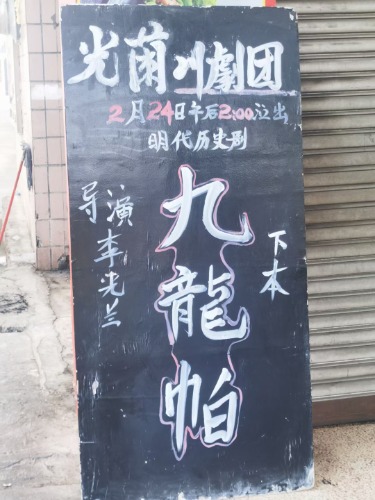 光蘭川劇团
2月24日午后2:00演出
明代历史剧
导演李光兰
九龍帕
下本